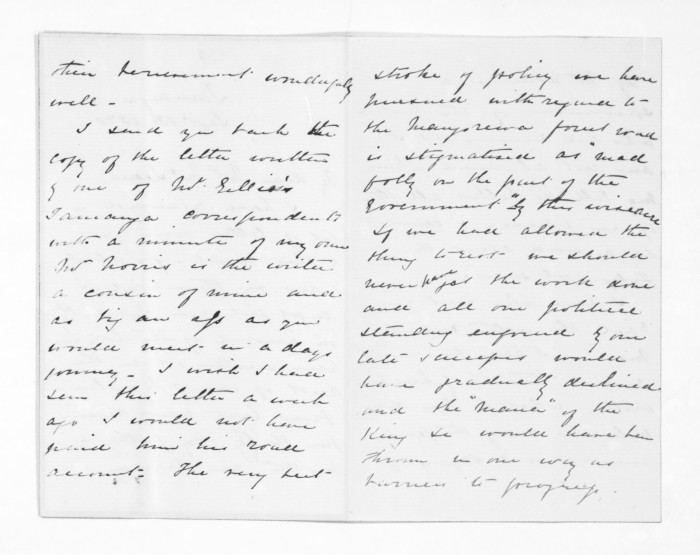 their Government wonderfully
well -
I send you back the
copy of the letter written
by one of Mr. Gillie's
Tauranga correspondents
with a minute of my own
Mr Norris is the writer
a cousin of mine and
as big an ass as you
would meet in a days
journey - I wish I had
seen this letter a week
ago I would not have
paid him his road
account - The very best
stroke of policy we have
pursued with regard to
the Mangorewa forest road
is stigmatised as "mad
folly on the part of the
Government" by this wiseacre
If we had allowed the
thing to rest we should
never have got the work done
and all our political
standing enforced by our
late successes would
have gradually declined
and the "mana" of the
King &c would have been
thrown in our way as
barriers to progress.